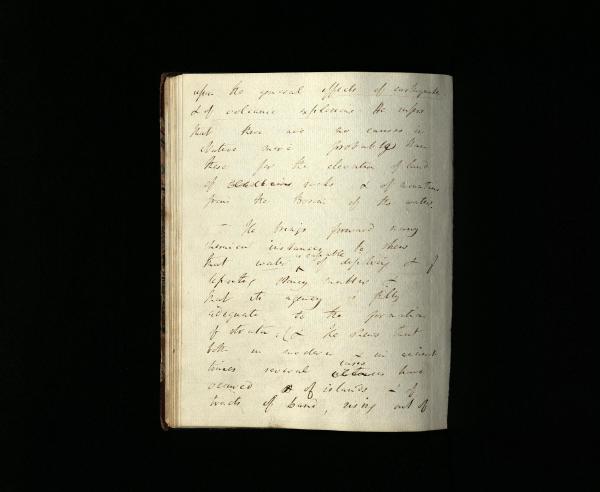 upon the general effects of earthquake
& of volcanic explosions. He infers
that there are no causes in
Nature more probable than
these for the elevation of land
of rocks & of mountains
from the bosom of the waters.
– He brings forward many
chemical instances to shew
that water is capable of dissolving & of
depositing stoney matter &
that its agency is fully
adequate to the formation
of strata. (& He shews that
both in modern & in ancient
times several cases have
occured of islands & of
tracts of land, rising out of